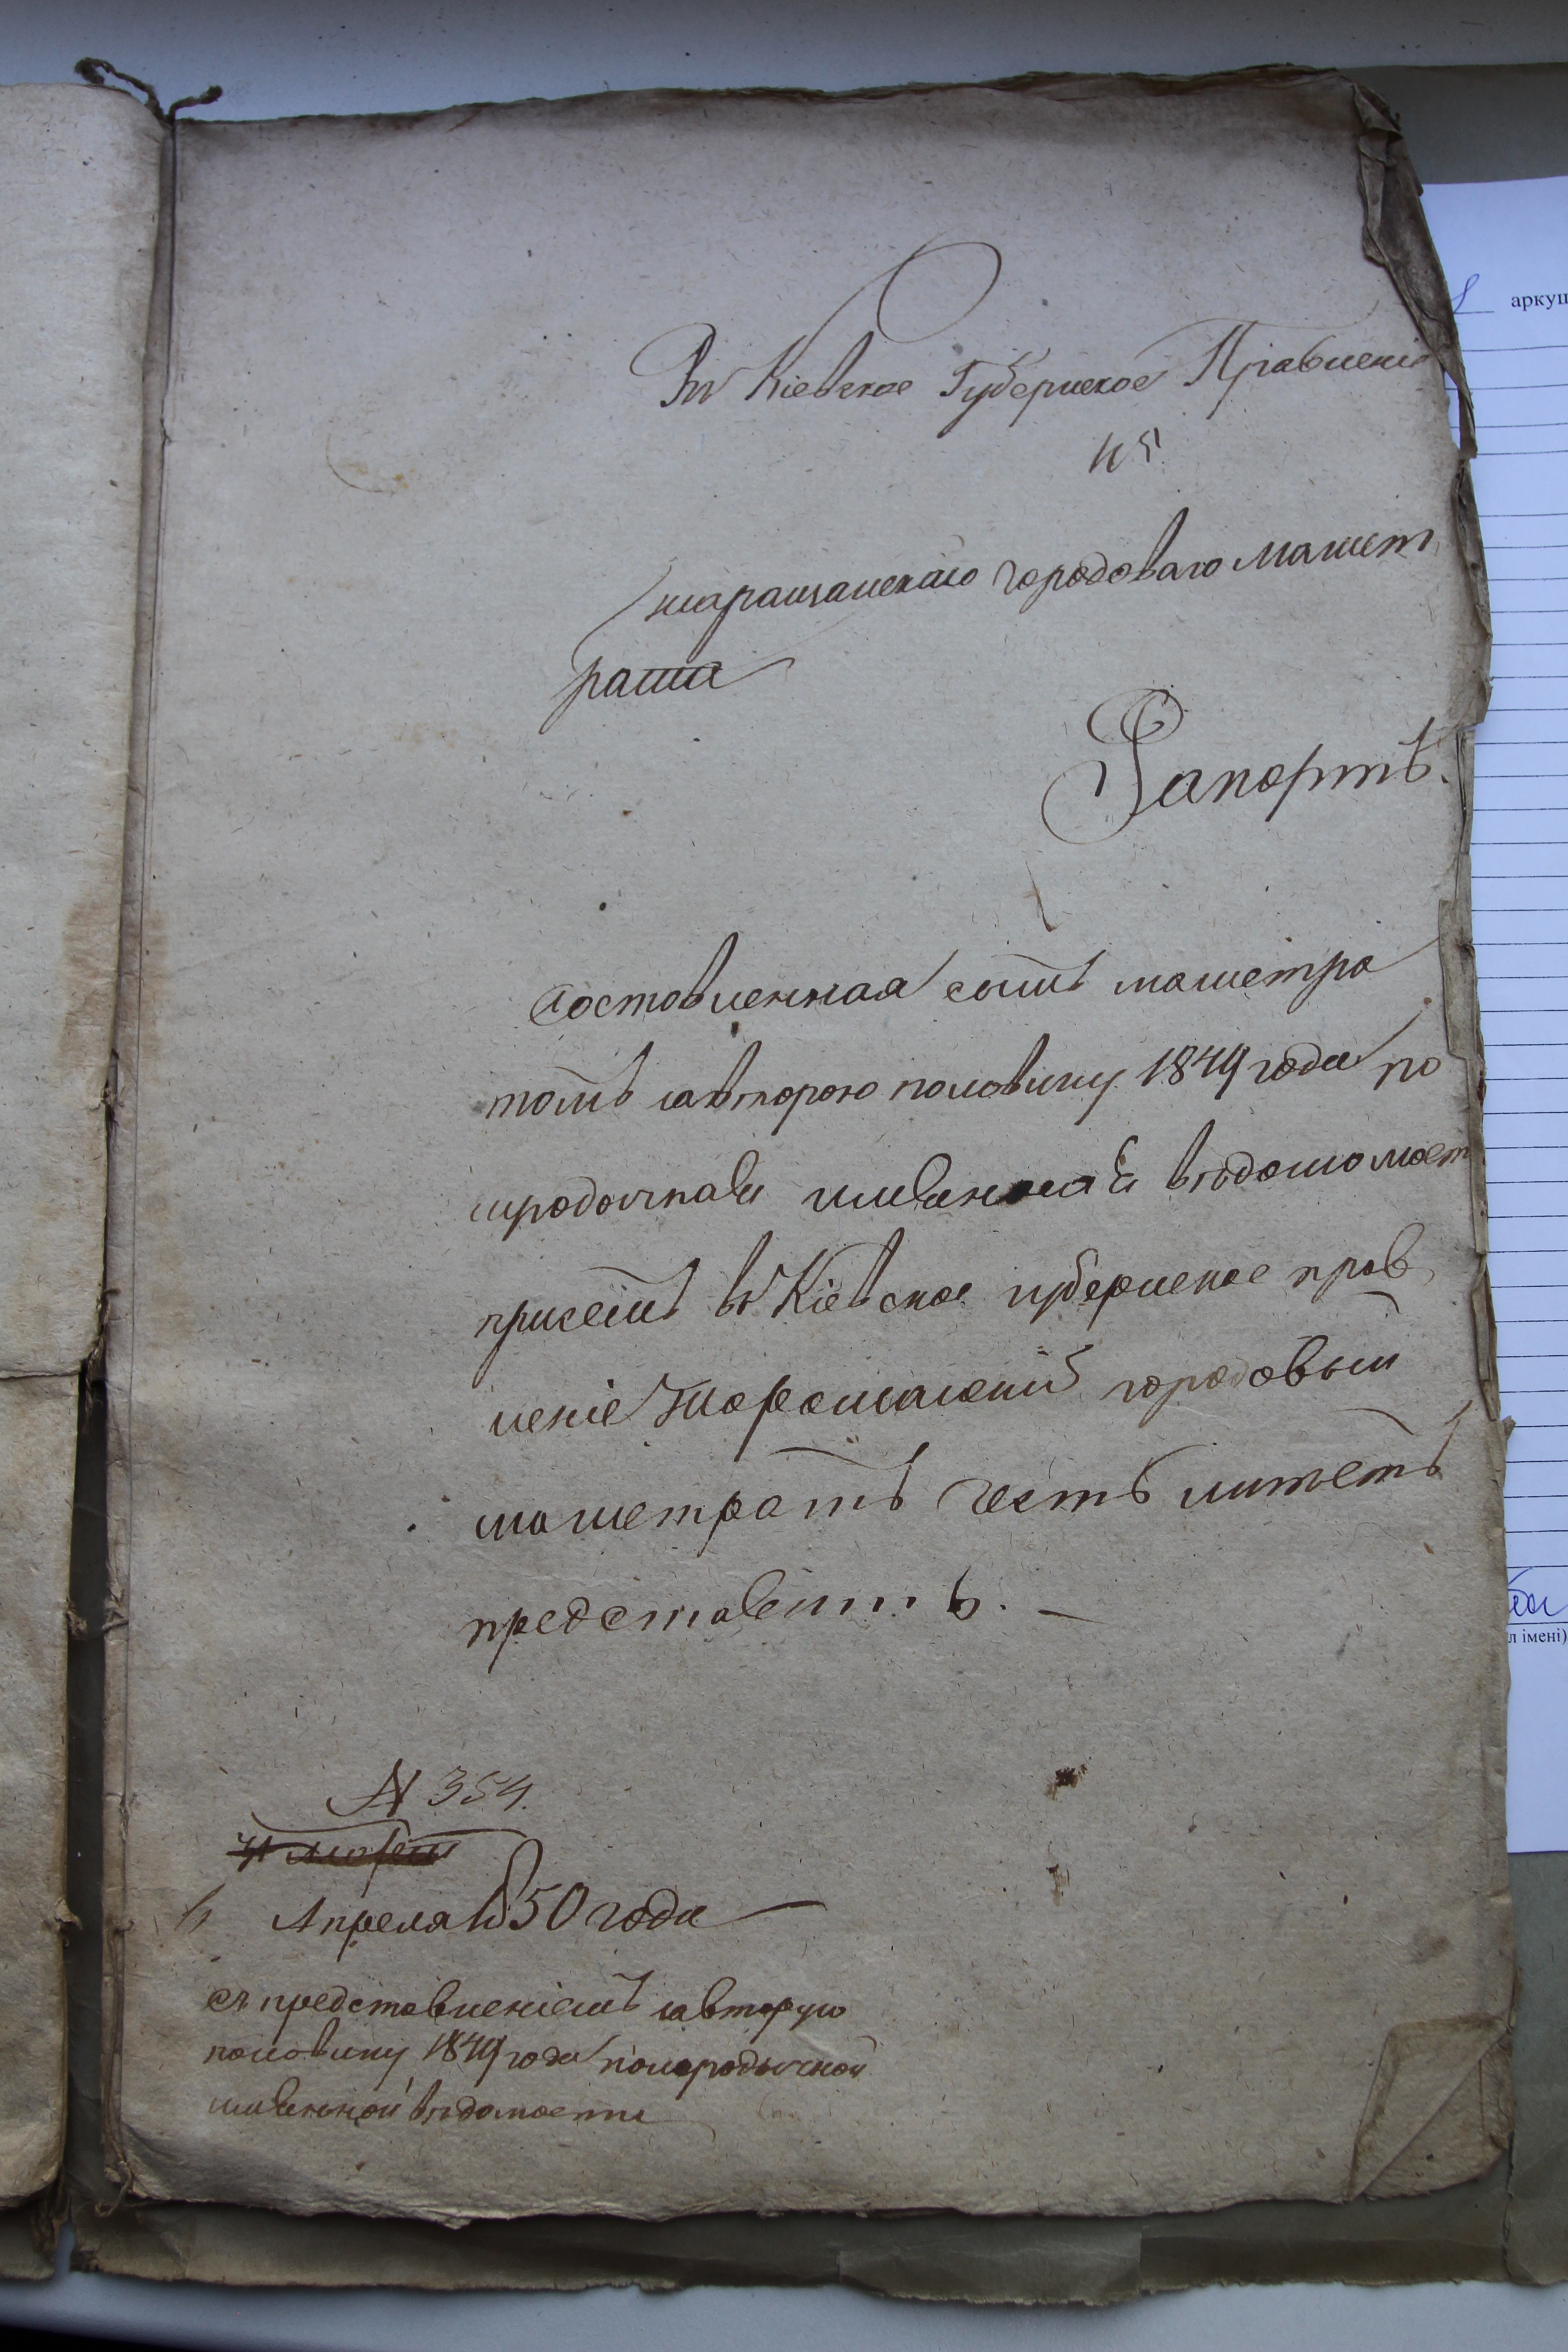 Въ Кіевское Губернское Правленіе
таращанскаго городоваго магист
рата
Рапортъ.
Составленная симъ магистра
томъ завторою половину 1849 года по
именная вѣдомость
присемъ въ Кіевское губернское прав
леніе Таращанскій городовый
магистратъ честь имѣетъ
представить. —
№ 354.
Апреля 1850 года
съ представленіемъ завторую
половину 1849 года
вѣдомости
аркуш
л імені)